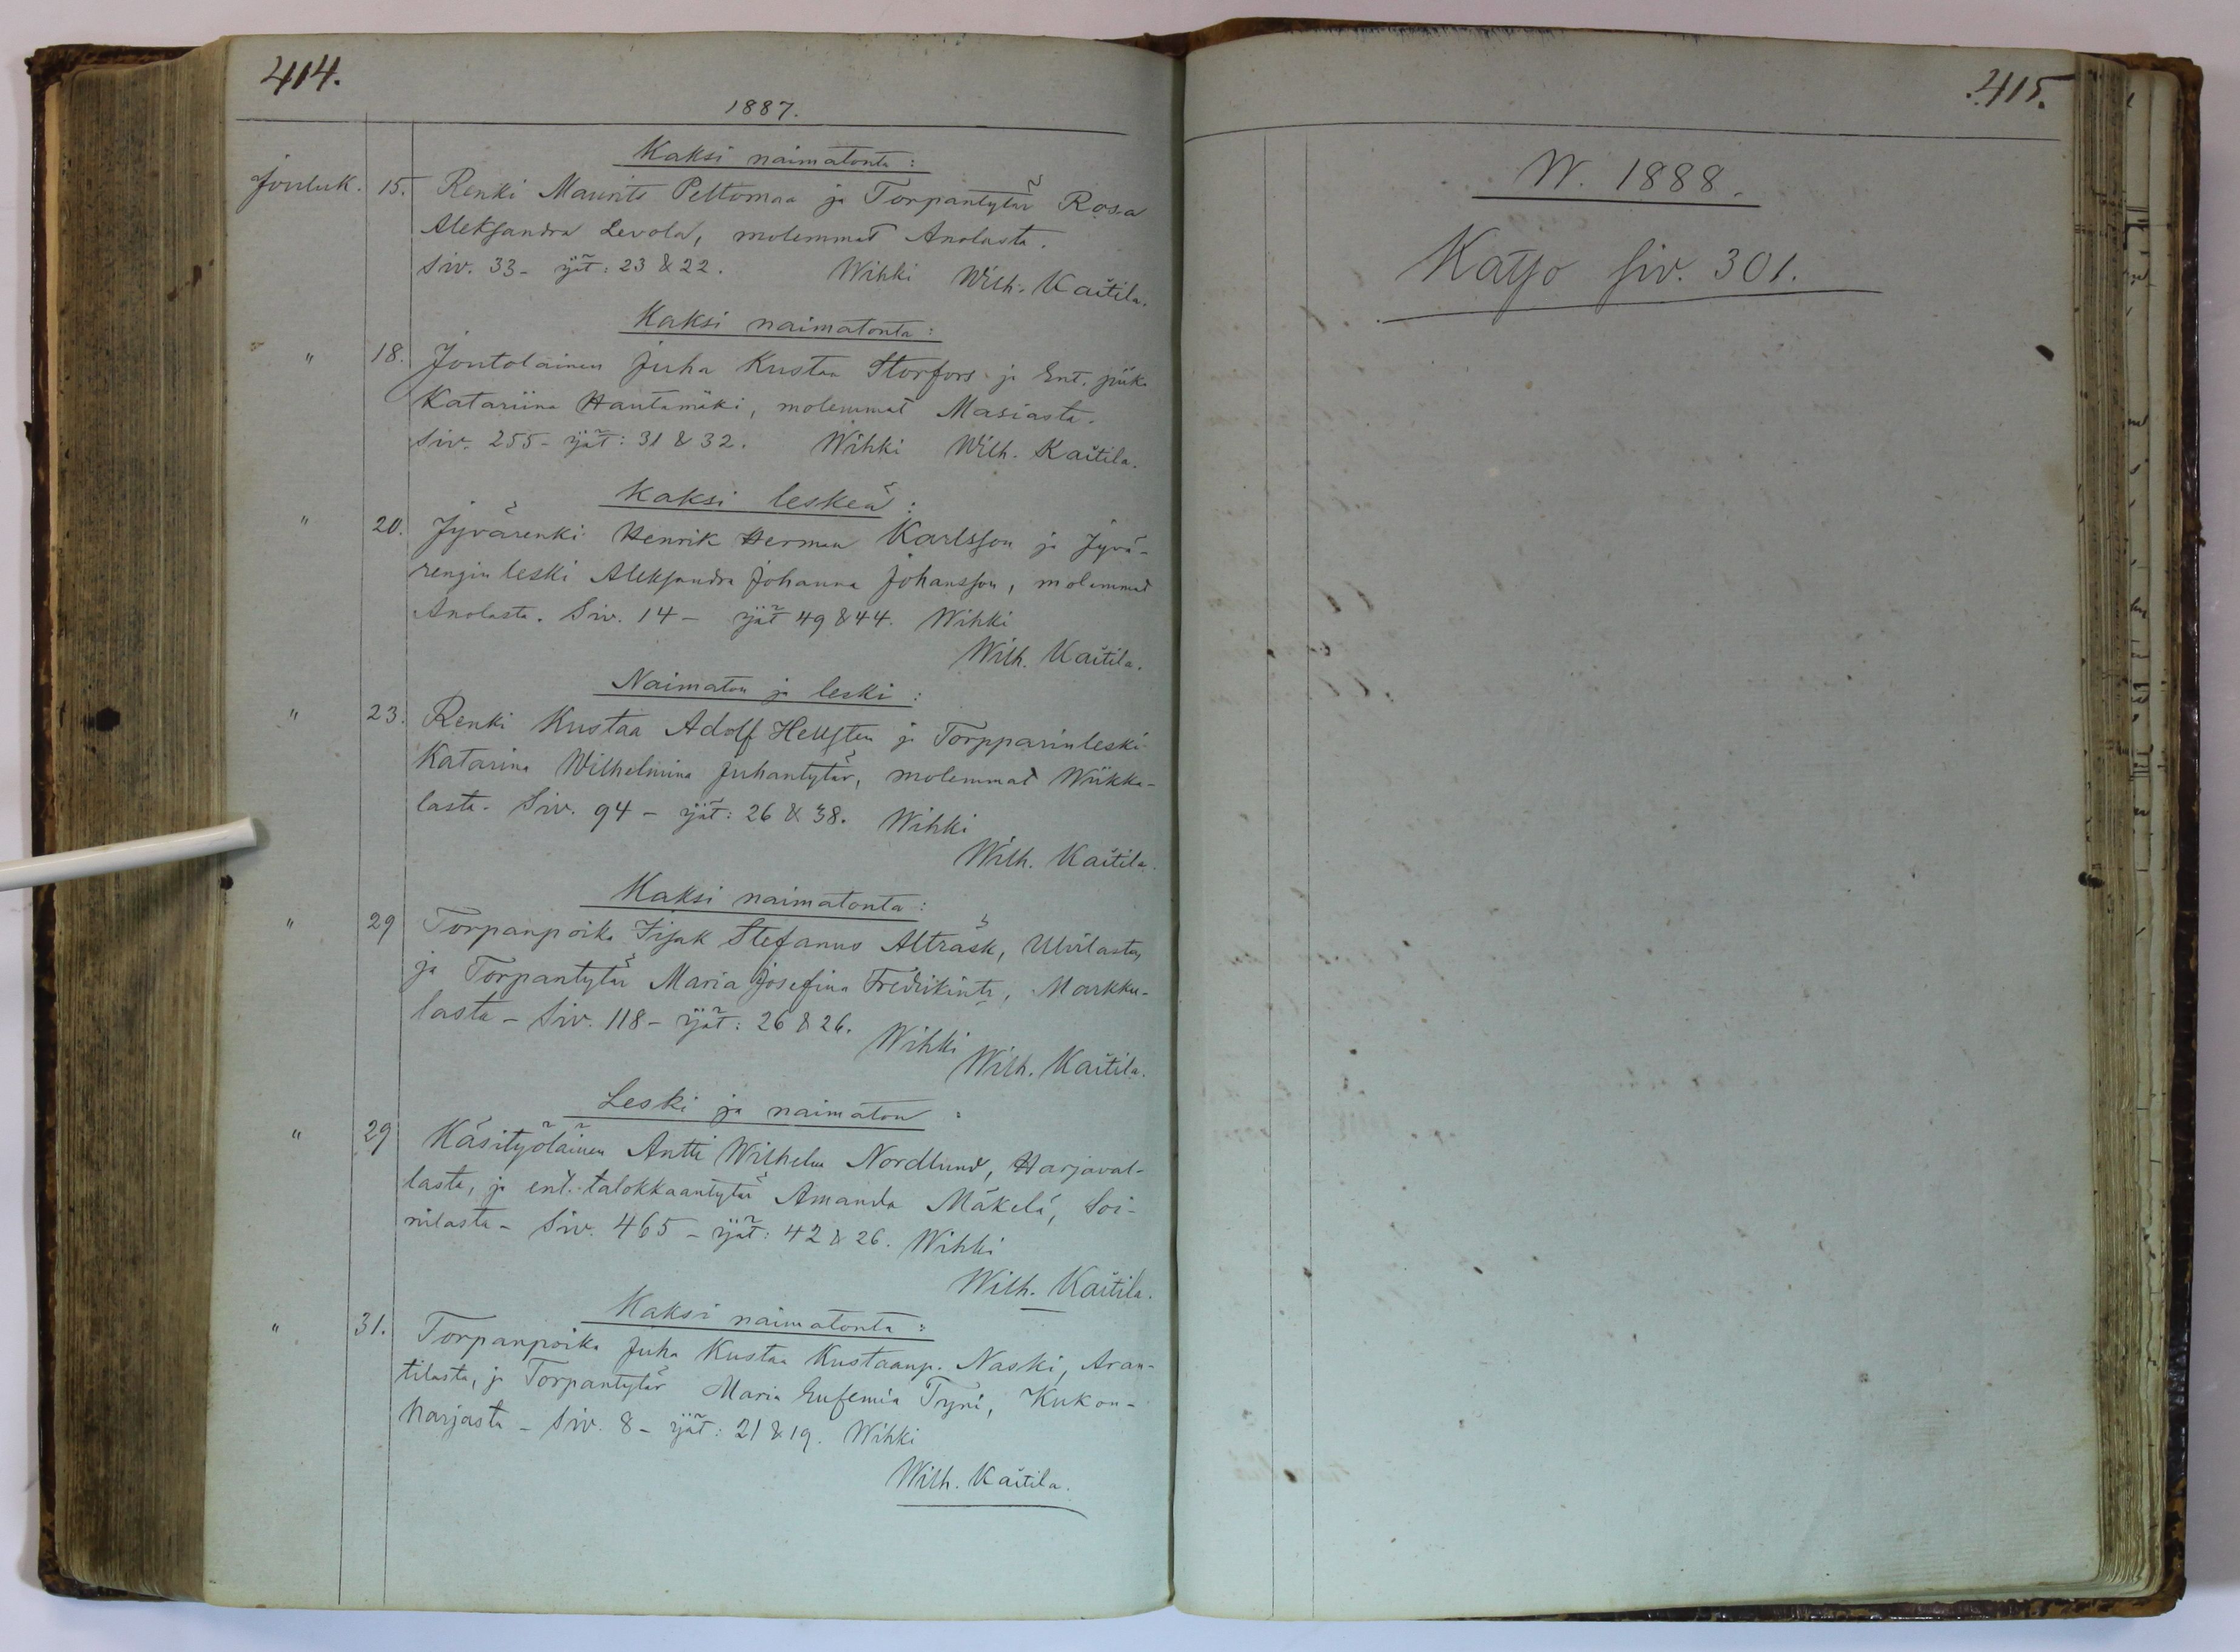 414.
1887.
Kaksi naimatonta:
Jouluk. 15. Renki Maurits Peltomaa ja Torpantytär Rosa
Aleksandra Levola, molemmat Anolasta.
Siv. 33 - ijät: 23 & 22. Wihki Wilh. Kaitila.
Kaksi naimatonta:
" 18. Joutolainen Juha Kustaa Storfors ja Ent. piika
Katariina Hautamäki, molemmat Masiasta.
Siv. 255 - ijät: 31 & 32. Wihki Wilh. Kaitila.
Kaksi leskeä:
" 20. Jyvärenki Henrik Herman Karlsson ja Jyvä-
rengin leski Aleksandra Johanna Johansson, molemmat
Anolasta. Siv. 14 - ijät 49 & 44. Wihki
Wilh. Kaitila.
Naimaton ja leski:
" 23. Renki Kustaa Adolf Hellsten ja Torpparinleski
Katarina Wilhelmina Juhantytär, molemmat Wiikka-
lasta. Siv. 94 - ijät: 26 & 38. Wihki
Wilh. Kaitila.
Kaksi naimatonta:
" 29 Torpanpoika Iisak Stefanus Alträsk, Ulvilasta,
ja Torpantytär Maria Josefina Fredrikint., Markku-
lasta - Siv. 118 - ijät: 26 & 26. Wihki
Wilh. Kaitila.
Leski ja naimaton:
" 29 Käsityöläinen Antti Wilhelm Nordlund, Harjaval-
lasta, ja ent. talokkaantytär Amanda Mäkelä, Soi-
nilasta - Siv. 465 - ijät: 42 & 26. Wihki
Wilh. Kaitila.
Kaksi naimatonta:
" 31. Torpanpoika Juha Kustaa Kustaanp. Naski, Aran-
tilasta, ja Torpantytär Maria Eufemia Tyni, Kukon-
harjasta - Siv. 8 - ijät: 21 & 19. Wihki
Wilh. Kaitila.
415.
W. 1888.
Katso siv. 301.